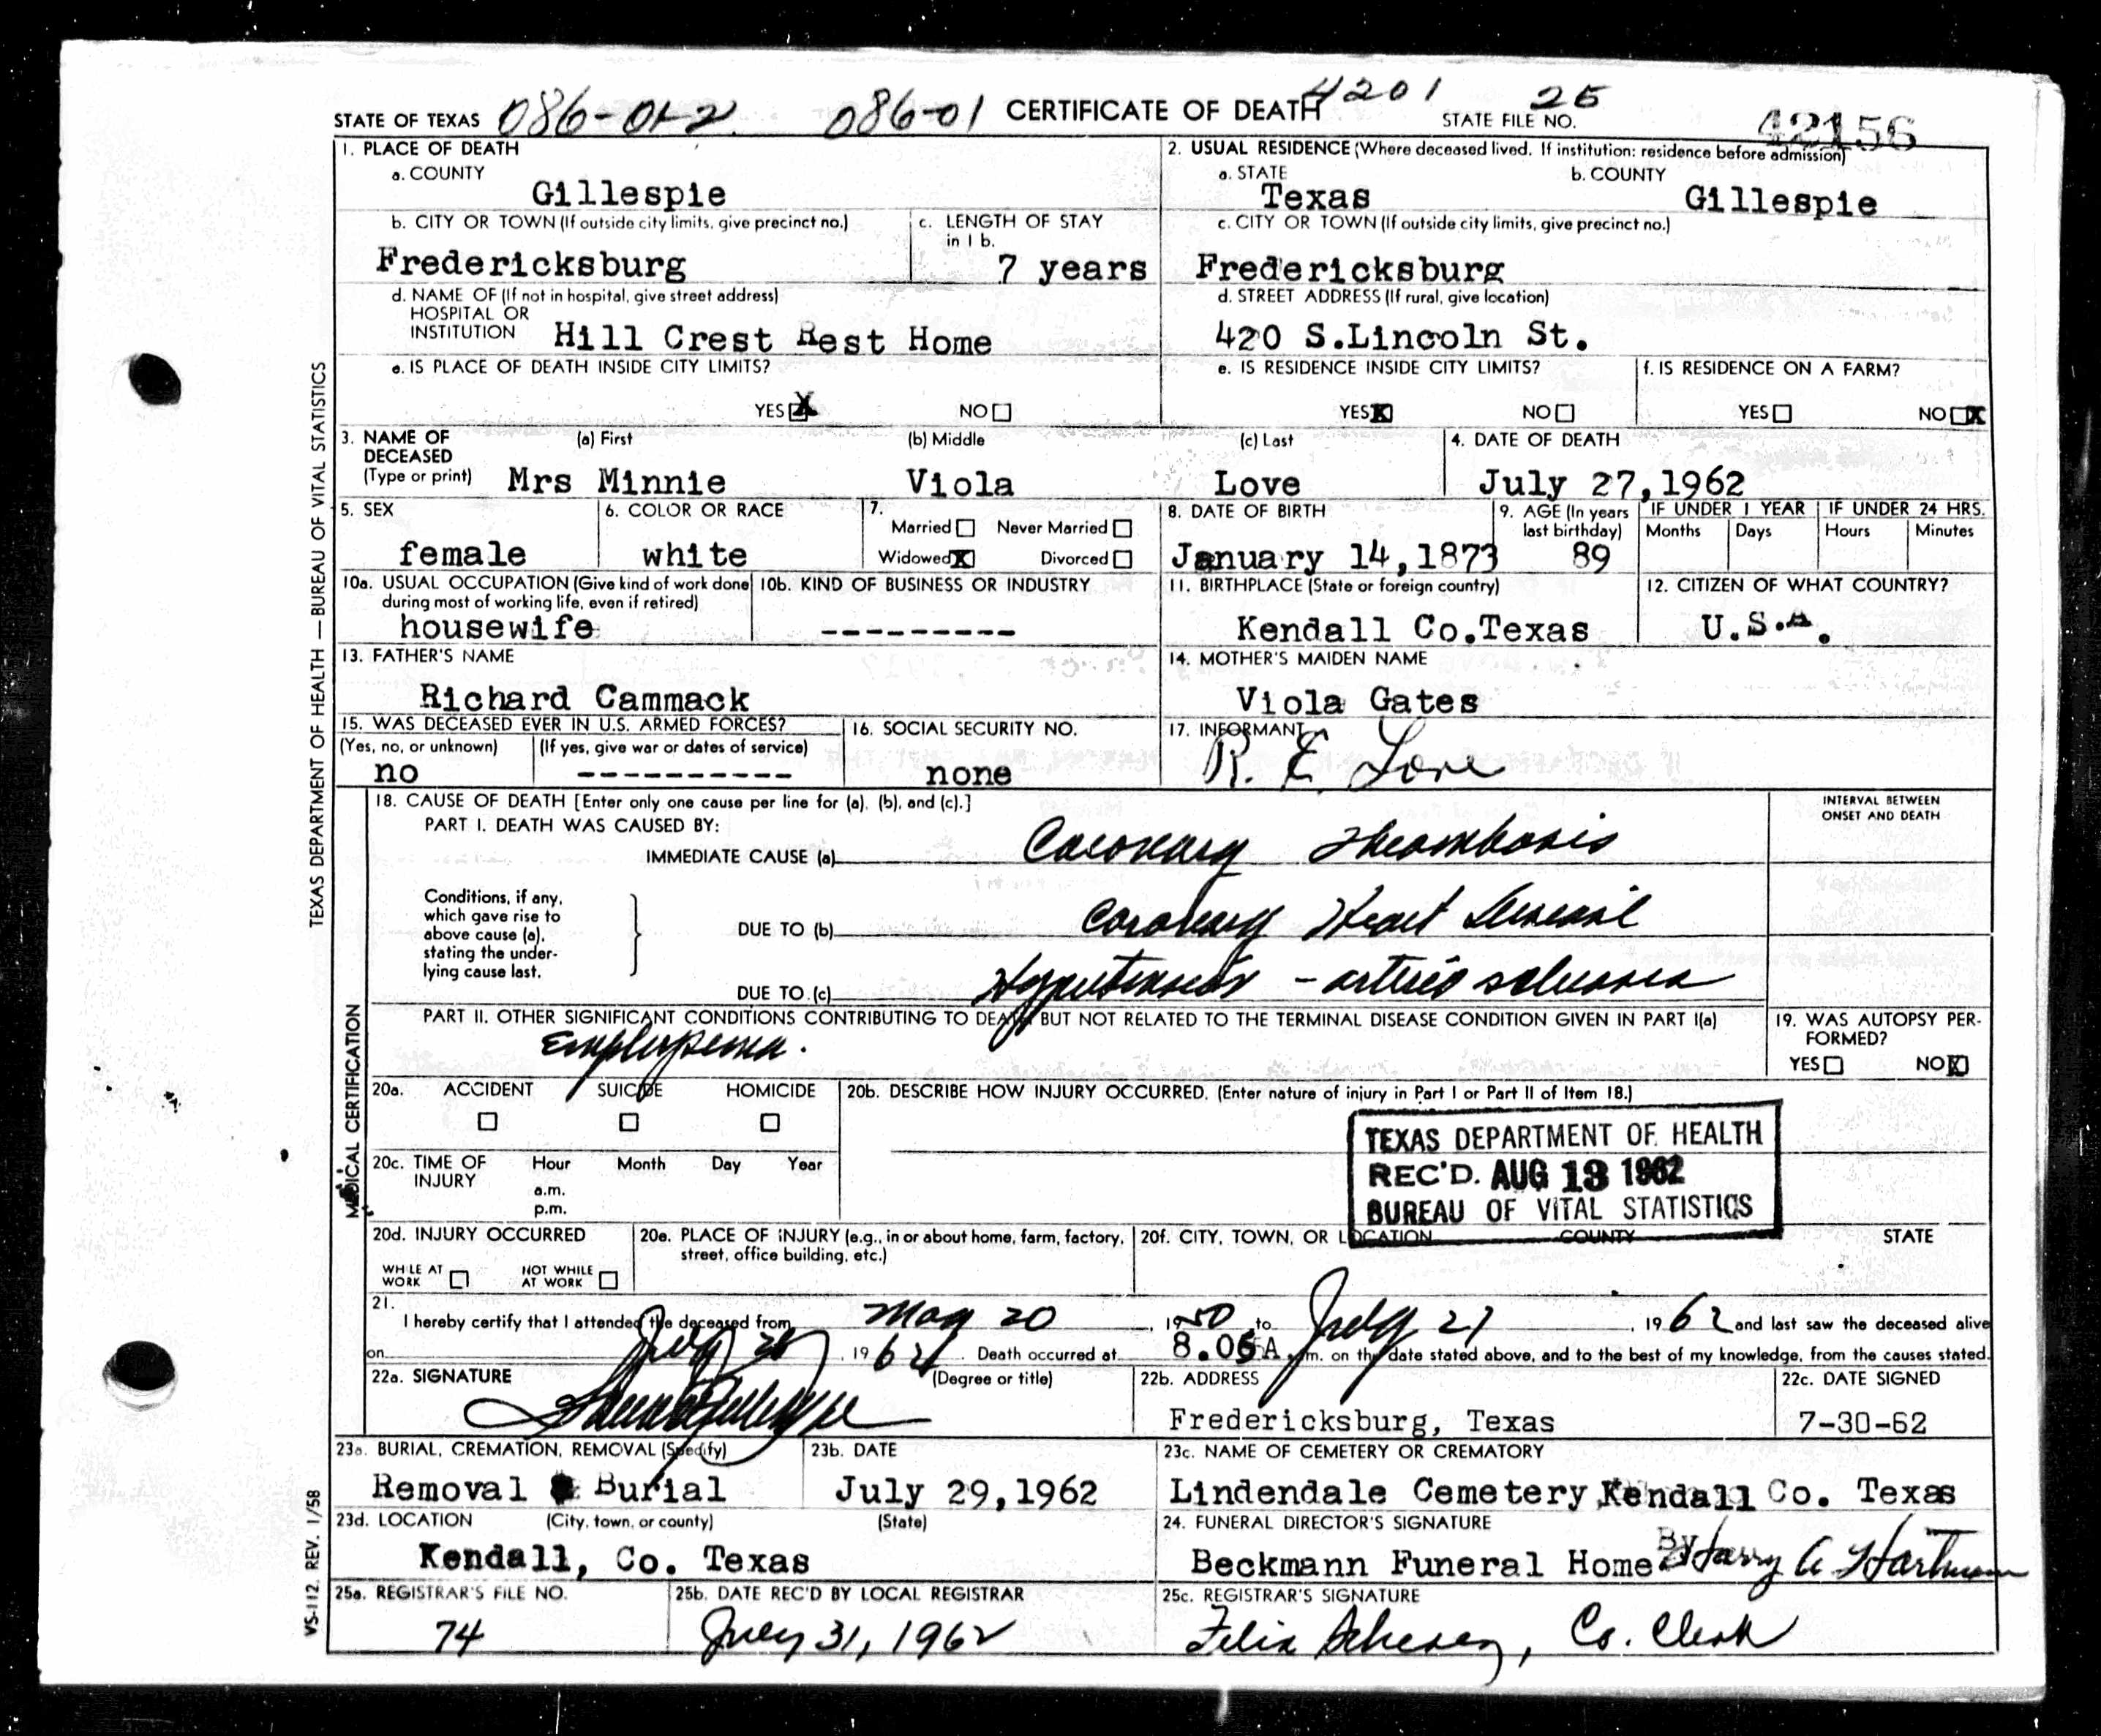 4201 25
STATE OF TEXAS 086-01-2 086-01 CERTIFICATE OF DEATH STATE FILE NO. 42156
1. PLACE OF DEATH
a. COUNTY
Gillespie
2. USUAL RESIDENCE (Where deceased lived. If institution: residence before admission)
a. STATE b. COUNTY
Texas Gillespie
b. CITY OR TOWN (If outside city limits, give precinct no.)
Fredericksburg
c. LENGTH OF STAY
in 1 b.
7 years
c. CITY OR TOWN (If outside city limits, give precinct no.)
Fredericksburg
d. NAME OF (If not in hospital, give street address)
HOSPITAL OR
INSTITUTION Hill Crest Rest Home
d. STREET ADDRESS (If rural, give location)
420 S.Lincoln St.
e. IS PLACE OF DEATH INSIDE CITY LIMITS?
YES X NO
e. IS RESIDENCE INSIDE CITY LIMITS?
YES X NO
f. IS RESIDENCE ON A FARM?
YES NO X
3. NAME OF DECEASED (Type or print)
(a) First (b) Middle (c) Last
Mrs Minnie Viola Love
4. DATE OF DEATH
July 27,1962
5. SEX
female
6. COLOR OR RACE
white
7.
Married Never Married
Widowed X Divorced
8. DATE OF BIRTH
January 14,1873
9. AGE (In years
last birthday)
89
IF UNDER 1 YEAR IF UNDER 24 HRS.
Months Days Hours Minutes
10a. USUAL OCCUPATION (Give kind of work done
during most of working life, even if retired)
housewife
10b. KIND OF BUSINESS OR INDUSTRY
---------
11. BIRTHPLACE (State or foreign country)
Kendall Co.Texas
12. CITIZEN OF WHAT COUNTRY?
U.S.A.
13. FATHER'S NAME
Richard Cammack
14. MOTHER'S MAIDEN NAME
Viola Gates
15. WAS DECEASED EVER IN U.S. ARMED FORCES?
(Yes, no, or unknown) (If yes, give war or dates of service)
no ----------
16. SOCIAL SECURITY NO.
none
17. INFORMANT
R. E. Love
TEXAS DEPARTMENT OF HEALTH — BUREAU OF VITAL STATISTICS
MEDICAL CERTIFICATION
18. CAUSE OF DEATH [Enter only one cause per line for (a), (b), and (c).]
INTERVAL BETWEEN
ONSET AND DEATH
PART I. DEATH WAS CAUSED BY:
IMMEDIATE CAUSE (a) Coronary Thrombosis
Conditions, if any,
which gave rise to
above cause (a),
stating the under-
lying cause last.
DUE TO (b) Coronary Heart Disease
DUE TO (c) Hypertension - arterio sclerosis
PART II. OTHER SIGNIFICANT CONDITIONS CONTRIBUTING TO DEATH BUT NOT RELATED TO THE TERMINAL DISEASE CONDITION GIVEN IN PART I(a)
Emphysema.
19. WAS AUTOPSY PER-
FORMED?
YES NO X
20a. ACCIDENT SUICIDE HOMICIDE
20b. DESCRIBE HOW INJURY OCCURRED. (Enter nature of injury in Part I or Part II of Item 18.)
TEXAS DEPARTMENT OF HEALTH
REC'D. AUG 13 1962
BUREAU OF VITAL STATISTICS
20c. TIME OF INJURY
Hour Month Day Year
a.m.
p.m.
20d. INJURY OCCURRED
WHILE AT WORK NOT WHILE AT WORK
20e. PLACE OF INJURY (e.g., in or about home, farm, factory,
street, office building, etc.)
20f. CITY, TOWN, OR LOCATION COUNTY STATE
21.
I hereby certify that I attended the deceased from May 20, 1950 to July 27, 1962 and last saw the deceased alive
on July 26, 1962. Death occurred at 8.05A m. on the date stated above, and to the best of my knowledge, from the causes stated.
22a. SIGNATURE (Degree or title)
22b. ADDRESS
Fredericksburg, Texas
22c. DATE SIGNED
7-30-62
23a. BURIAL, CREMATION, REMOVAL (Specify)
Removal & Burial
23b. DATE
July 29,1962
23c. NAME OF CEMETERY OR CREMATORY
Lindendale Cemetery,Kendall Co. Texas
23d. LOCATION (City, town, or county) (State)
Kendall, Co. Texas
24. FUNERAL DIRECTOR'S SIGNATURE
Beckmann Funeral Home By Harry A Hartmann
25a. REGISTRAR'S FILE NO.
74
25b. DATE REC'D BY LOCAL REGISTRAR
July 31, 1962
25c. REGISTRAR'S SIGNATURE
Felix , Co. Clerk
VS-112. REV. 1/58